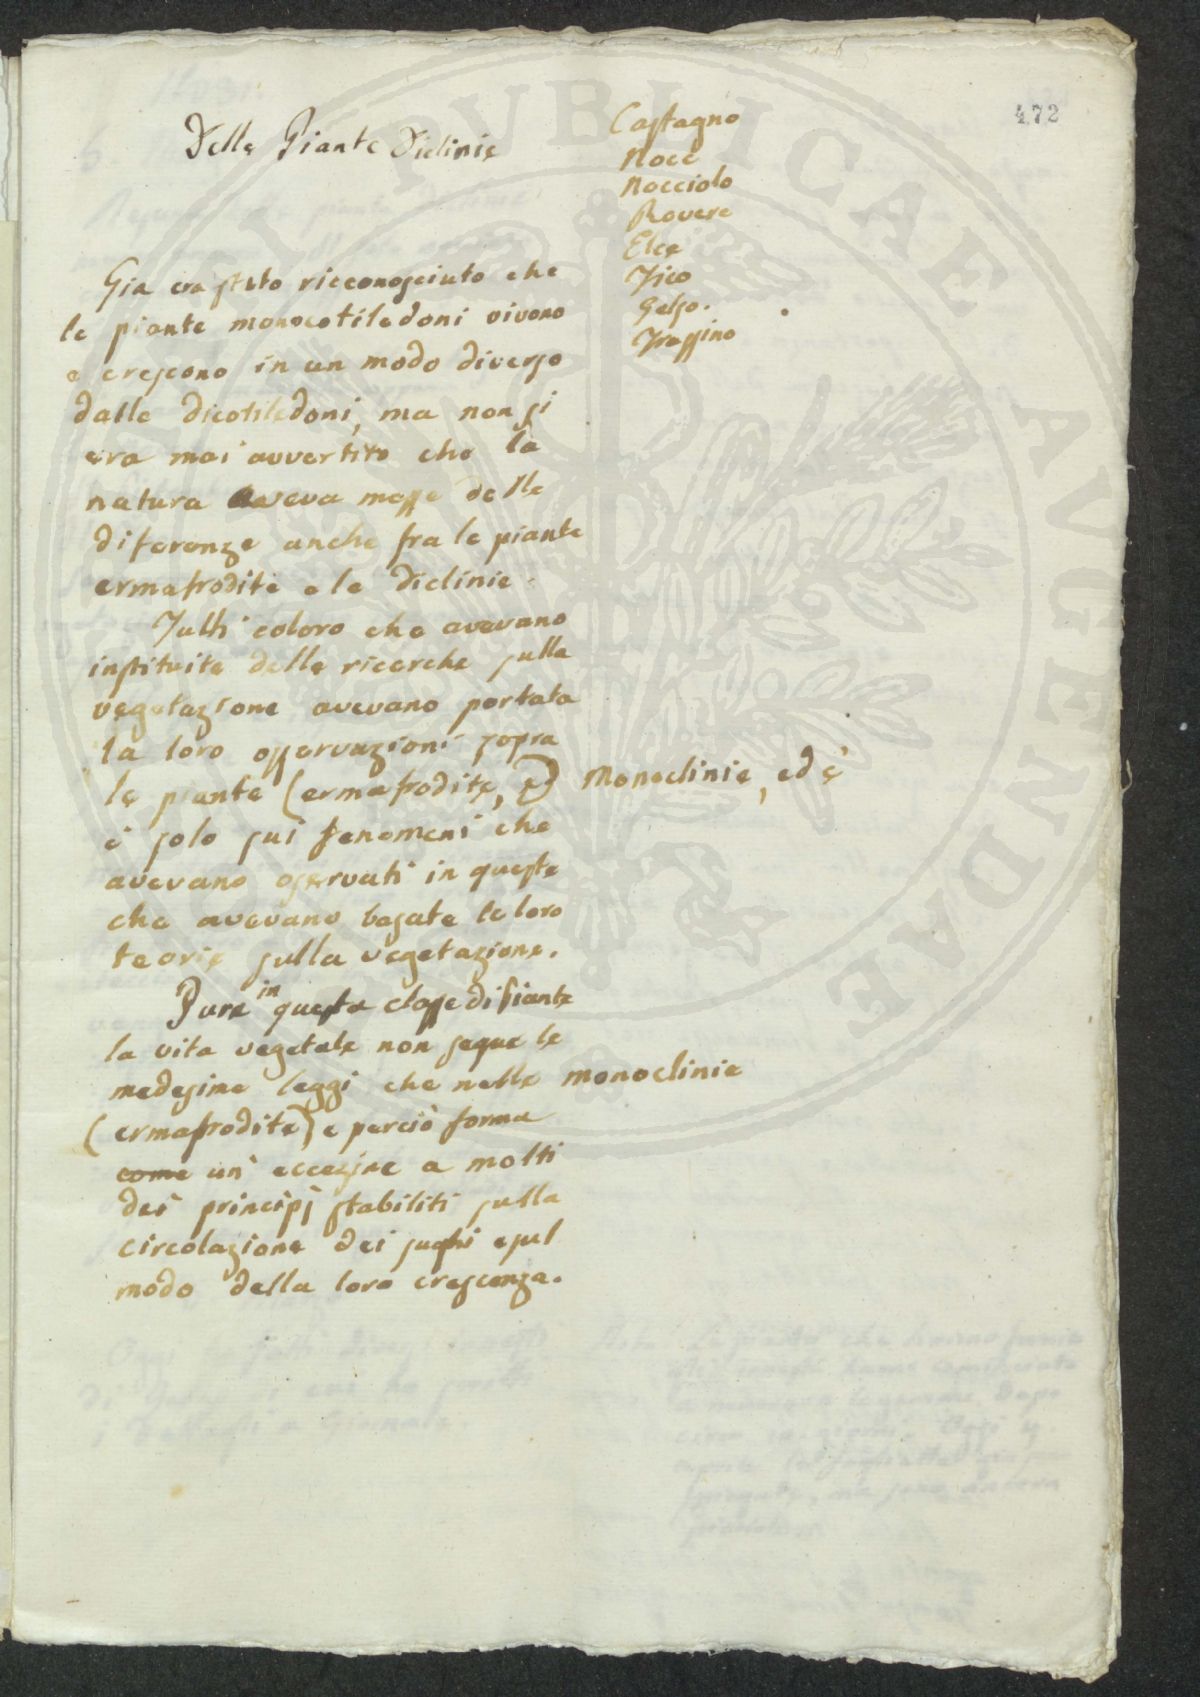 472
Delle Piante Diclinie
Castagno
Noce
Nocciolo
Rovere
Elce
Fico
Gelso.
Frassino
Gia era stato ricconosciuto che
le piante monocotiledoni vivono
e crescono in un modo diverso
dalle dicotiledoni, ma non si
era mai avvertito che la
natura aveva messe delle
diferenze anche fra le piante
ermafrodite e le diclinie.
Tutti coloro che avevano
instituite delle ricerche sulla
vegetazione avevano portata
la loro osservazioni sopra
le piante (ermafrodite, e) Monoclinie, ed è
è solo sui fenomeni che
avevano osservati in queste
che avevano basate le loro
teorie sulla vegetazione.
Pure in questa classe di Piante
la vita vegetale non segue le
medesime leggi che nelle monoclinie
(ermafrodite) e perciò forma
come un' eccezine a molti
dei principj stabiliti sulla
circolazione dei sughi e sul
modo della loro crescenza.